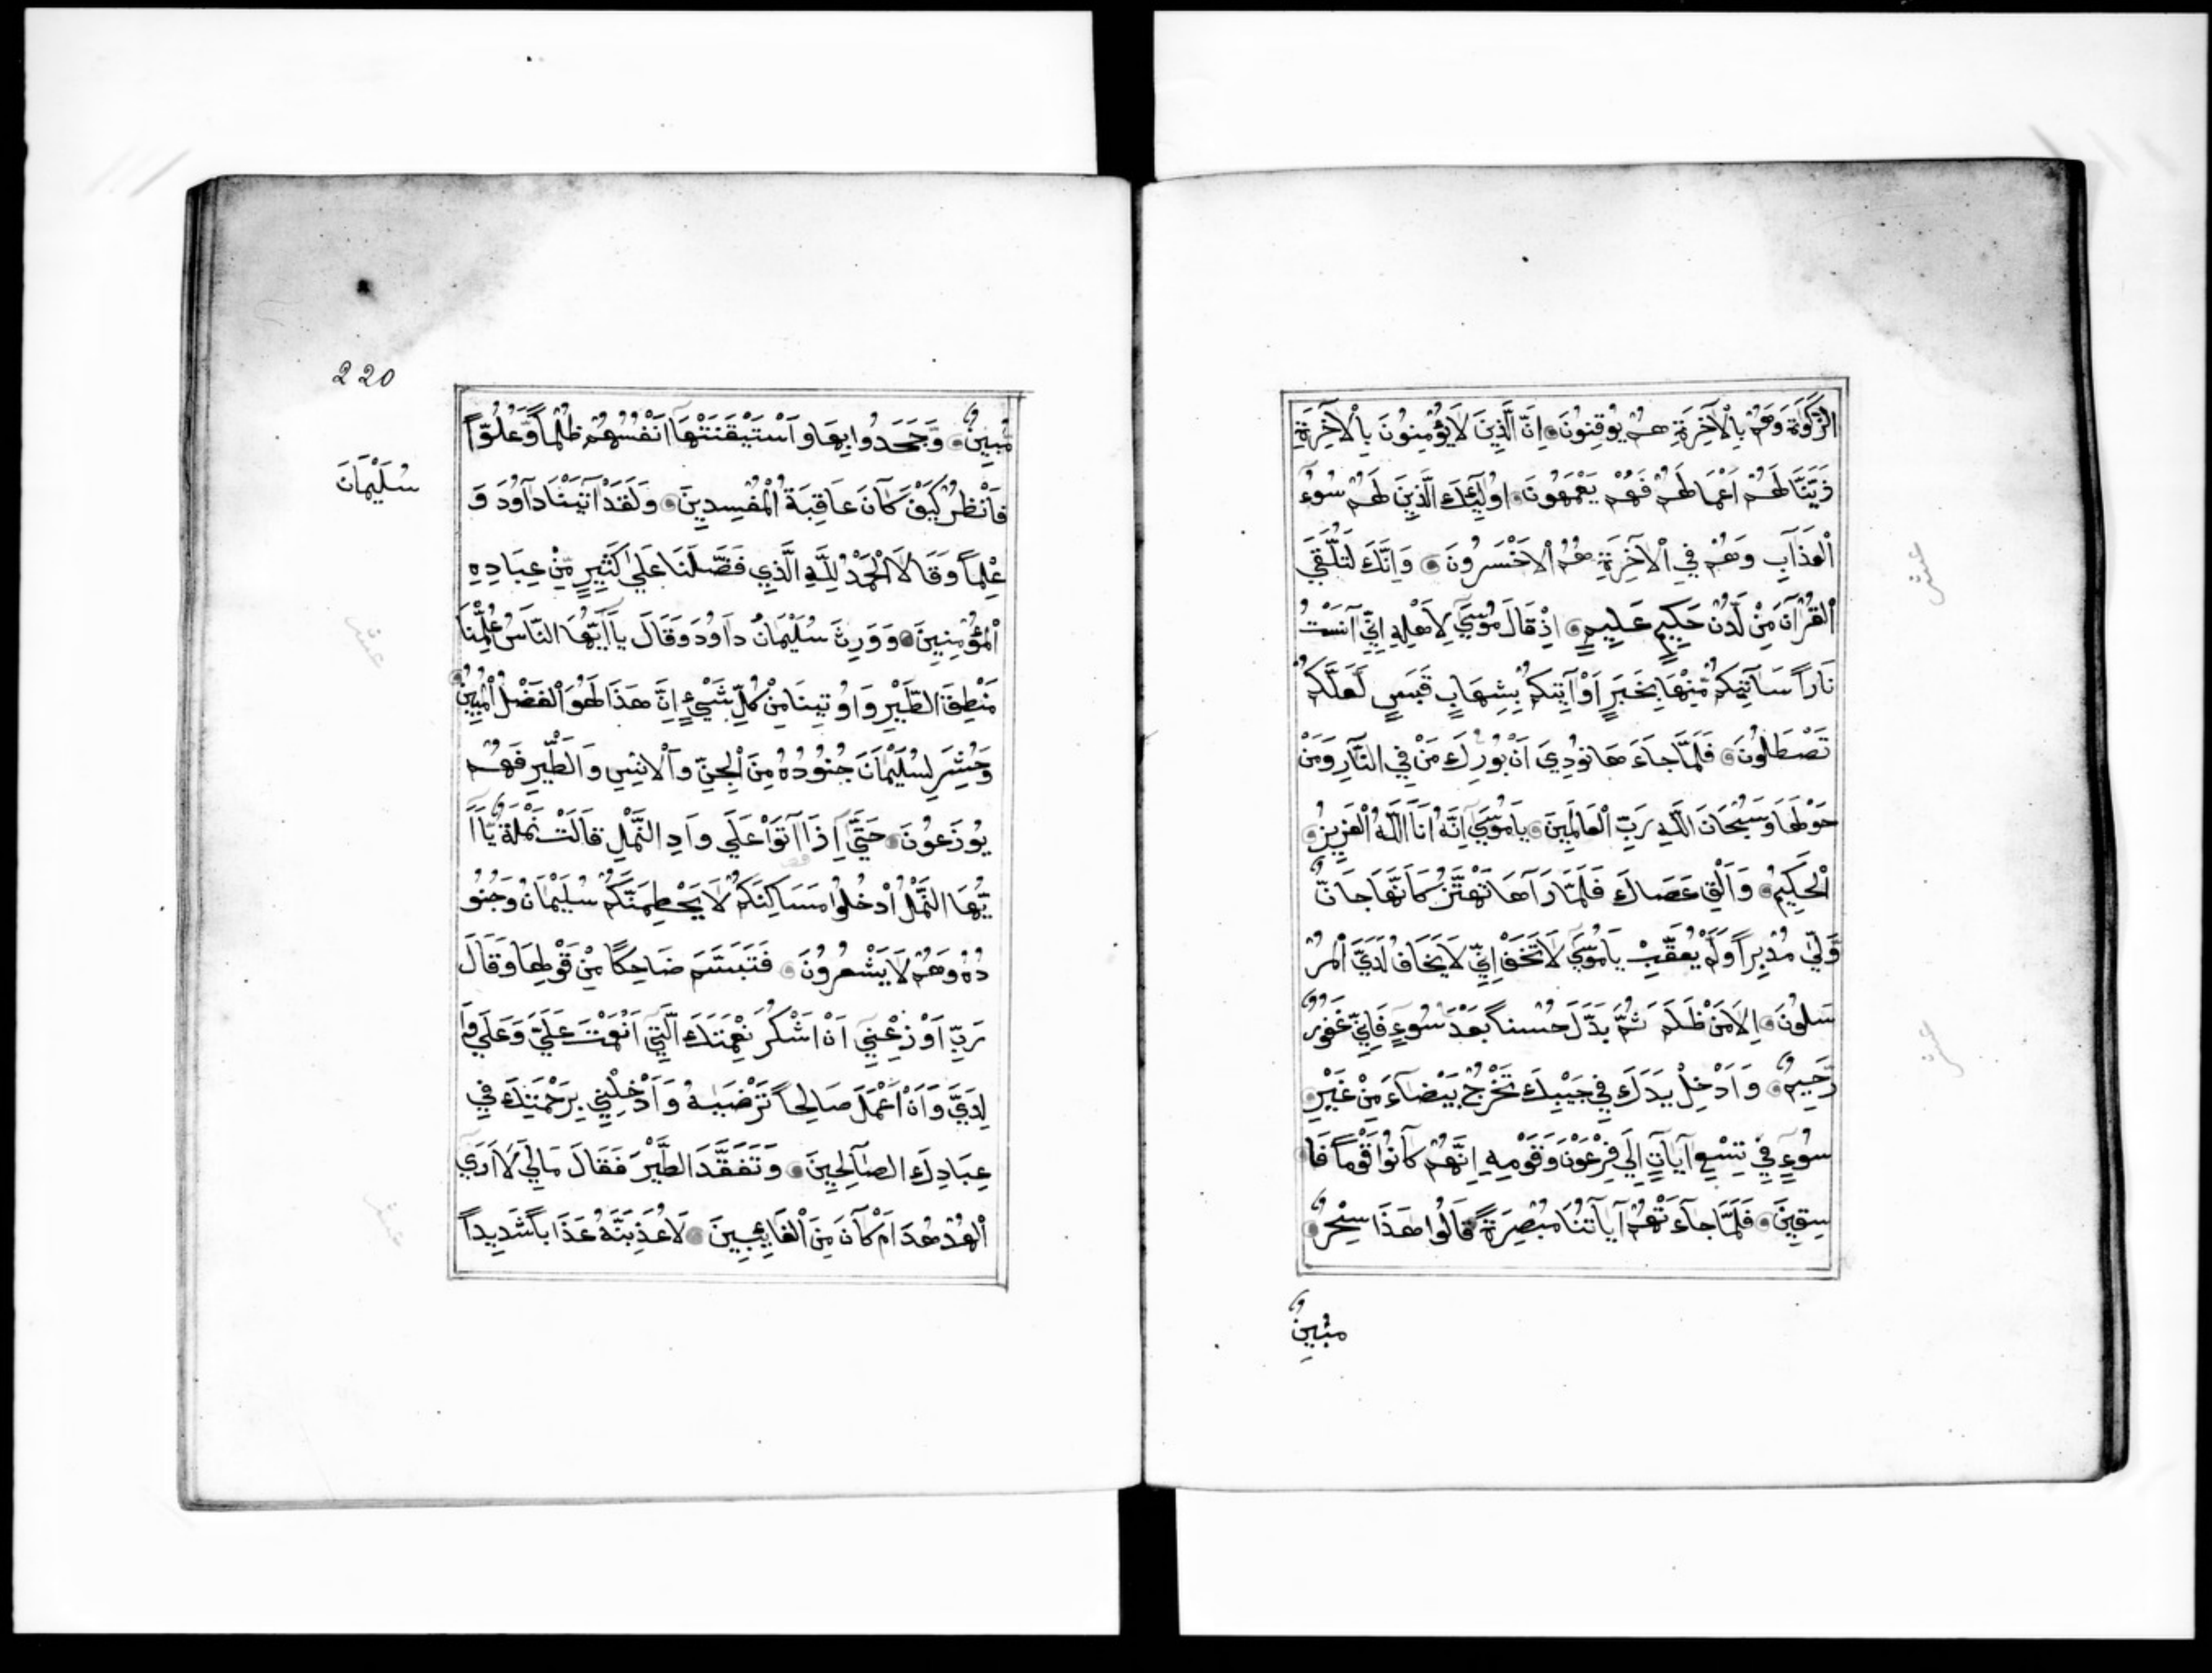 الزَّكَوٰةَ وَهُمْ بِاْلآخِرَةِ هُمْ يُوقِنُونَ اِنَّ الَّذِينَ لَايُؤْمِنُونَ بِاْلآخِرَةِ
زَيَّنَّا لَهُمْ اَعْمَالَهُمْ فَهُمْ يَعْمَهُونَ اوُلَٓئِكَ الَّذِينَ لَهُمْ سُوٓءُ
اْلعَذَابِ وَهُمْ فِي اْلآخِرَةِ هُمُ اْلاَخْسَرُونَ وَاِنَّكَ لَتُلَقَّي
اْلقُرْآنَ مِنْ لَّدُنْ حَكِيمٍ عَلِيمٍ اِذْقَالَ مُوسَي لِاَهْلِهِ اِنِّي آنَسْتُ
نَاراً سَآتِيكُمْ مِّنْهَا بِخَبَرٍ اَوْ آتِيكُمْ بِشِهَابٍ قَبَسٍ لَعَلَّكُمْ
تَصْطَلُونَ فَلَمَّا جَاءَهَا نُودِيَ اَنْ بُورِكَ مَنْ فِي النَّارِ وَمَنْ
حَوْلَهَا وَسُبْحَانَ اللَّهِ رَبِّ اْلعَالَمِينَ يَامُوسَي اِنَّهُ اَنَا اللَّهُ اْلعَزِيزُ
اْلحَكِيمُ وَاَلْقِ عَصَاكَ فَلَمَّا رَآهَا تَهْتَزُّ كَاَنَّهَا جَانٌّ
وَّلَّىٰ مُدْبِراً وَلَمْ يُعَقِّبْ يَامُوسَي لَاتَخَفْ اِنِّي لَايَخَافُ لَدَيَّ اْلمُرْ
سَلُونَ اِلاَّ مَنْ ظَلَمَ ثُمَّ بَدَّلَ حُسْناً بَعْدَ سُوءٍ فَاِنِّي غَفُورٌ
رَّحِيمٌ وَاَدْخِلْ يَدَكَ فِي جَيْبِكَ تَخْرُجْ بَيْضَآءَ مِنْ غَيْرِ
سُوٓءٍ فِي تِسْعِ آيَاتٍ اِلَي فِرْعَوْنَ وَقَوْمِهِ اِنَّهُمْ كَانُوا قَوْماً فَا
سِقِينَ فَلَمَّا جَآءَتْهُمْ آيَاتُنَا مُبْصِرَةً قَالُوا هَذَا سِحْرٌ
مُبِينٌ
220
مُّبِينٌ وَجَحَدُوا بِهَا وَاَسْتَيْقَنَتْهَا اَنْفُسُهُمْ ظُلْماً وَّعُلُوّاً
فَانْظُرْ كَيْفَ كَانَ عَاقِبَةُ اْلمُفْسِدِينَ وَلَقَدْ آتَيْنَا دَاوُدَ وَ
سُلَيْمَانَ
عِلْماً وَقَالَا اْلحَمْدُ لِلَّهِ الَّذِي فَضَّلَنَا عَلَي كَثِيرٍ مِّنْ عِبَادِهِ
اْلمُؤْمِنِينَ وَوَرِثَ سُلَيْمَانُ دَاوُدَ وَقَالَ يَآاَيُّهَا النَّاسُ عُلِّمْنَا
مَنْطِقَ الطَّيْرِ وَاوُتِينَا مِنْ كُلِّ شَيْءٍ اِنَّ هَذَا لَهُوَ اْلفَضْلُ اْلمُبِينُ
وَحُشِرَ لِسُلَيْمَانَ جُنُودُهُ مِنَ اْلجِنِّ وَاْلاِنْسِ وَالطَّيْرِ فَهُمْ
يُوزَعُونَ حَتَّي اِذَا اَتَوْا عَلَي وَادِ النَّمْلِ قَالَتْ نَمْلَةٌ يَّآاَ
يُّهَا النَّمْلُ اْدْخُلُوا مَسَاكِنَكُمْ لَايَحْطِمَنَّكُمْ سُلَيْمَانُ وَجُنُو
دُهُ وَهُمْ لَايَشْعُرُونَ فَتَبَسَّمَ ضَاحِكًا مِنْ قَوْلِهَا وَقَالَ
رَبِّ اَوْزِعْنِي اَنْ اَشْكُرَ نِعْمَتَكَ الَّتِي اَنْعَمْتَ عَلَيَّ وَعَلَي وَا
لِدَيَّ وَاَنْ اَعْمَلَ صَالِحاً تَرْضَيهُ وَاَدْخِلْنِي بِرَحْمَتِكَ فِي
عِبَادِكَ الصَّالِحِينَ وَتَفَقَّدَ الطَّيْرَ فَقَالَ مَالِيَ لَااَرَي
اْلهُدْهُدَ اَمْ كَانَ مِنَ اْلغَائِبِينَ لَاُعَذِّبَنَّهُ عَذَاباً شَدِيداً